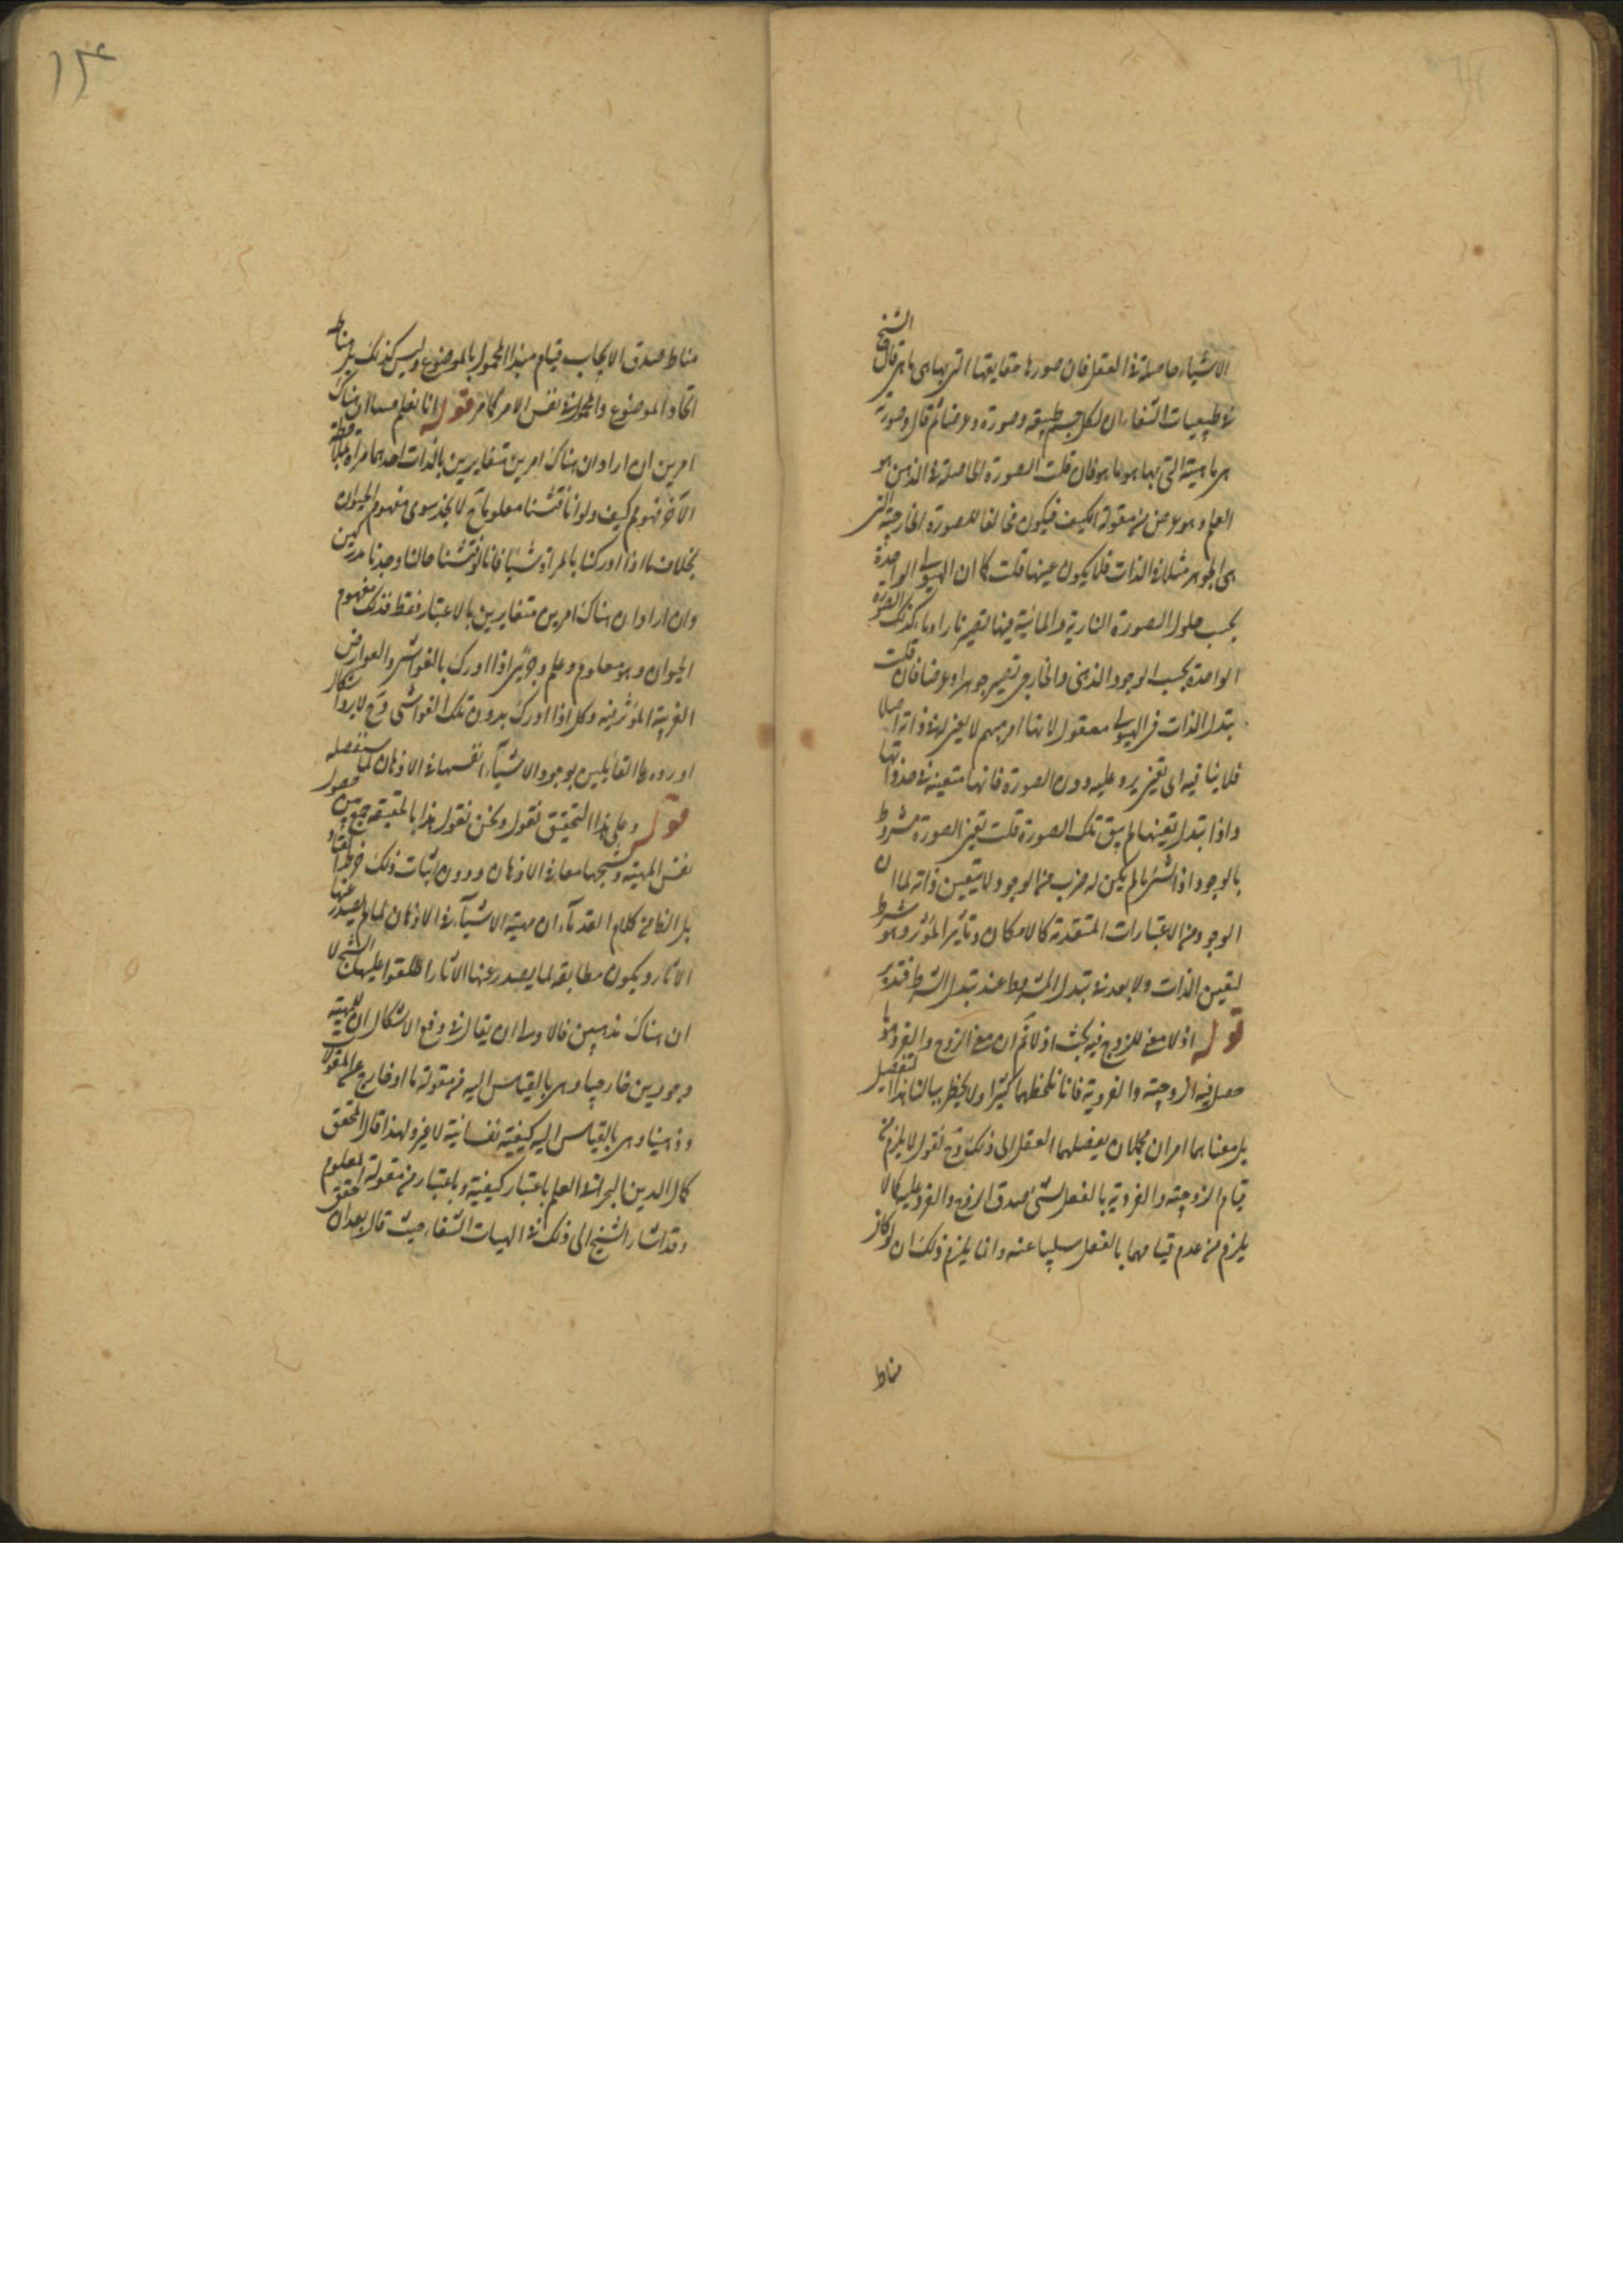 الاشياء حاصلة في العقل فان صورها حقايقها التي بها هي ما هي قال الشيخ
في طبيعيات الشفاء ان لكل جسم طبيعة وصورة وعرضا ثم قال وصورته
هي ماهيته التي بها هو ما هو فان قلت الصورة الحاصلة في الذهن هو
العلم وهو عرض من مقولة الكيف فيكون مخالفا للصورة الخارجية التي
هي الجوهر مثلا في الذات فلا يكون عينها قلت كما ان الهيولى الواحدة
بحسب حلول الصورة النارية والمائية فيها تصير نارا وماء كذلك الصورة
الواحدة بحسب الوجود الذهني والخارجي تصير جوهرا وعرضا فان قلت
تبدل الذات في الهيولى معقول لانها امر مبهم لا تعين له في ذاته اصلا
فلا ينافيه اي تعين يرد عليه دون الصورة فانها متعينة في حد ذاتها
واذا تبدل تعينها لم يبق تلك الصورة قلت تعين الصورة مشروط
بالوجود اذ الشئ ما لم يكن له ضرب من الوجود لا يتعين ذاته لما ان
الوجود من الاعتبارات المتقدمة كالامكان وتأثير المؤثر وهو شرط
لتعين الذات ولا بعد في تبدل المشروط عند تبدل الشرط فتدبر
قوله اذ لا معنى للزوج فيه بحث اذ لا نم ان معنى الزوج والفرد ما
حصل فيه الزوجية والفردية فانا نلحظهما كثيرا ولا يخطر ببالنا هذا التفصيل
بل معناهما امران مجملان يفصلهما العقل الى ذلك وح نقول لا يلزم من
قيام الزوجية والفردية بالفعل لشئ صدق الزوج والفرد عليه كما لا
يلزم من عدم قيامهما بالفعل سلبها عنه وانما يلزم ذلك ان لو كان
مناط
١٣٤
مناط صدق الايجاب قيام مبدا المحمول بالموضوع وليس كذلك بل مناطه
اتحاد الموضوع والمحمول في نفس الامر كما مر قوله انا نعلم مسا ان هناك
امرين ان اراد ان هناك امرين متغايرين بالذات احدهما مرآة لملاحظة
الآخر فهو مم كيف ولو انا فتشنا معلوماتنا لا نجد سوى مفهوم الحيوان
بخلاف ما اذا ادركنا بالمرآة شيئا فانا لو فتشنا حالنا وجدنا مدركين
وان اراد ان هناك امرين متغايرين بالاعتبار فقط فذلك مفهوم
الحيوان وهو معلوم وعلم وجزئي اذا ادرك بالغواشي والعوارض
الغريبة المؤثرة فيه وكلي اذا ادرك بدون تلك الغواشي وح لا يرد اشكال
اورده على القائلين بوجود الاشياء انفسها في الاذهان كما سنفصله
قوله وعلى هذا التحقيق نقول ونحن نقول هذا بالحقيقة جمع بين حصول
نفس المهية وشبحها معا في الاذهان ودون اثبات ذلك خرط القتاد
بل الظاهر من كلام القدماء ان مهية الاشياء في الاذهان لما لم يصدر عنها
الآثار ويكون مطابقة لما يصدر عنها الآثار اطلقوا عليها الشبح لا
ان هناك مذهبين فالاولى ان يقال في دفع الاشكال ان للمهية
وجودين خارجيا وهي بالقياس اليه من مقولة ما او خارج عن المقولات
وذهنيا وهي بالقياس اليه كيفية نفسانية لا غير ولهذا قال المحقق
كمال الدين البحراني العلم باعتبار كيفية وباعتبار من مقولة المعلوم
وقد اشار الشيخ الى ذلك في الهيات الشفاء حيث قال بعد ان حقق